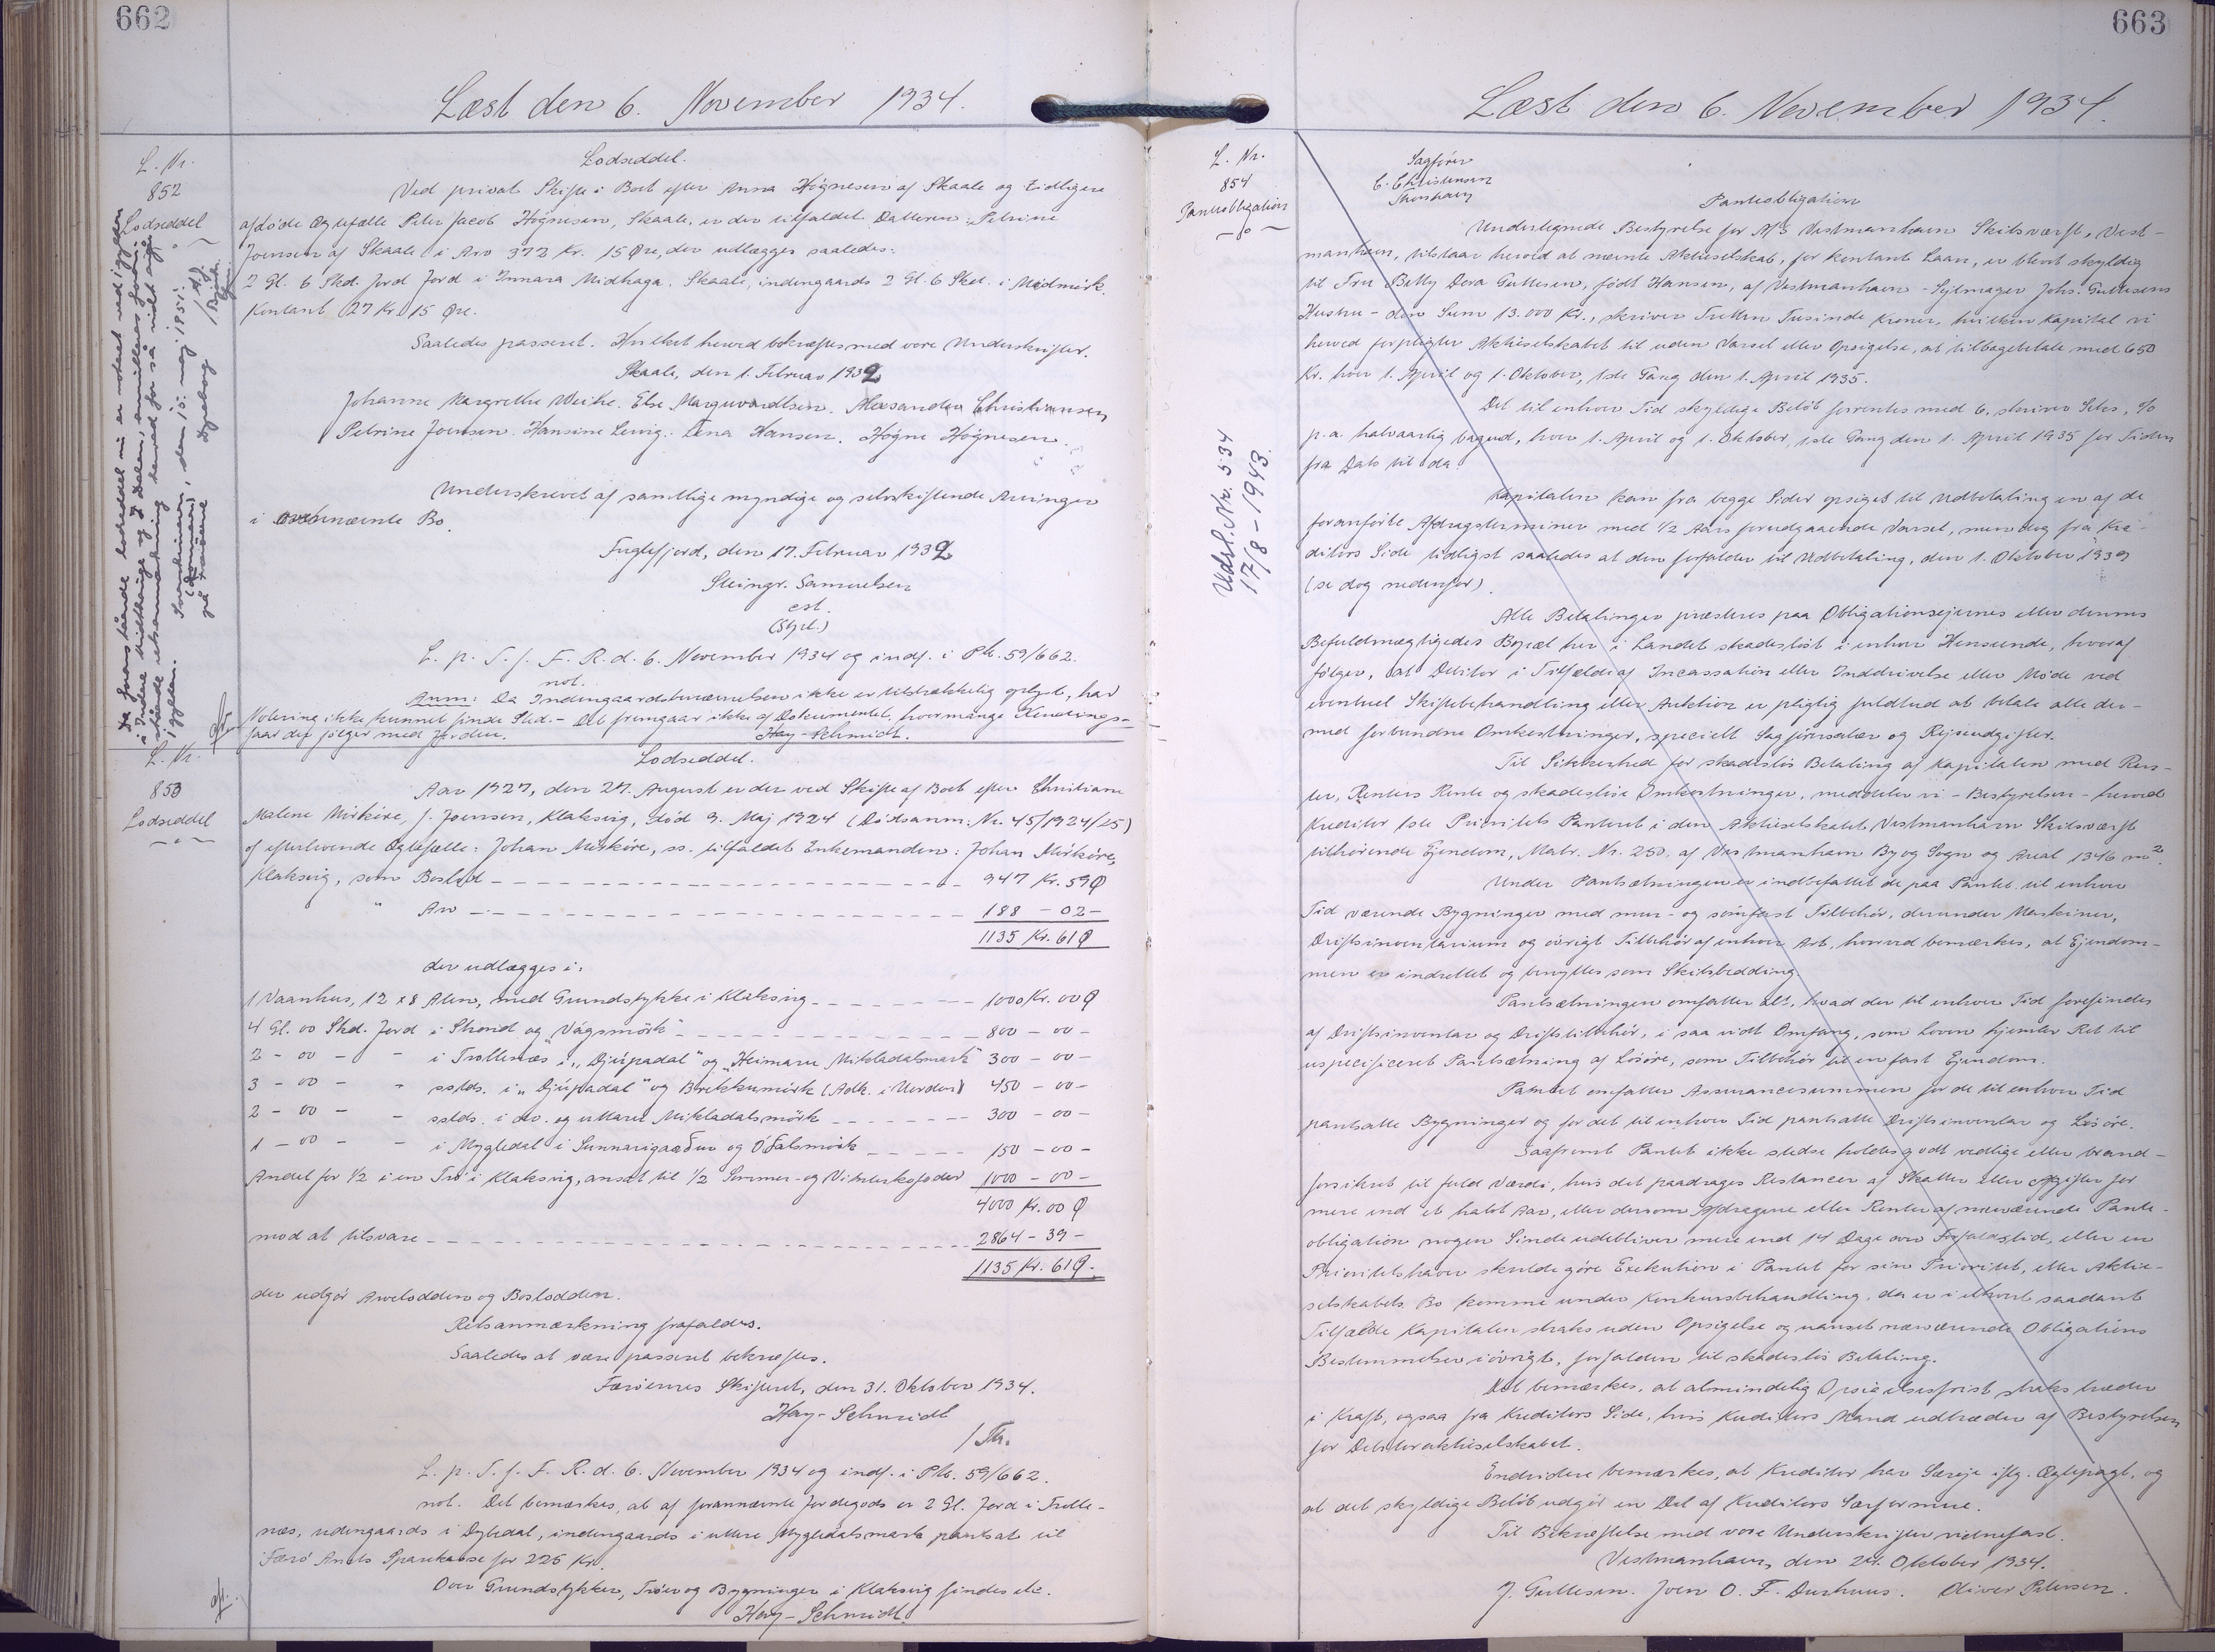 662
Læst den 6. November 1934.
L. Nr.
852
Lodseddel
Lodseddel.
Ved privat Skifte i Boet efter Anna Högnesen af Skaale og tidligere
afdöde Ægtefælle Peter Jacob Högnesen, Skaale, er der tilfaldet Datteren: Petrine
Joensen af Skaale i Arv 372 Kr. 15 Øre, der udlægges saaledes:
2 Gl. 6 Skd. Jord Jord i Innara Midhaga, Skaale, indengaards 2 Gl. 6 Skd. i Midmörk.
Kontant 27 Kr. 15 Øre.
Saaledes passeret. Hvilket herved bekræftes med vore Underskrifter.
Skaale, den 1. Februar 1932
Johanne Margrethe Weihe. Else Marquardtsen. Alexandra Christiansen
Petrine Joensen. Hansine Lervig. Lena Hansen. Högne Högnesen.
Underskrevet af samtlige myndige og selvskiftende Arvinger
i ovennævnte Bo.
Fuglefjord, den 17. Februar 1932
Steingr. Samuelsen
cst.
(Syst.)
L. p. T. f. F. R. d. 6. November 1934 og indf. i Pb. 59/662.
not.
Anm: Da Indengaardsbenævnelsen ikke er tilstrækkelig oplyst, har
Notering ikke kunnet finde Sted. - Det fremgaar ikke af Dokumentet, hvormange
faar der følger med Jorden. Hay-Schmidt.
Da foranstående lodseddel nu er noteret ved i gylden
i Indere Midthage og I Dalem, anmilles foran-
stående retsanmærkning herved for så vidt angår
i gylden.
Sorenskriveren, den 15. maj 1951.
på Færöerne
L. Nr.
853
Lodseddel
Lodseddel.
Aar 1927, den 24. August er der ved Skifte af Boet efter Christiane
Malene Mörköre, f. Joensen, Klaksvig, död 9. Maj 1924 (Dödsanm. Nr. 45/1924/25)
og efterlevende Ægtefælle: Johan Mörköre, ss. tilfaldet Enkemanden: Johan Mörköre,
Klaksvig, som Boslod - - - 947 Kr. 59 Ø
" Arv - - - 188 - 02 -
1135 Kr. 61 Ø
der udlægges i:
1 Vaanhus, 12 x 8 Alen, med Grundstykke i Klaksvig - - - 1000 Kr. 00 Ø
4 Gl. 00 Skd. Jord i Skorid og "Vágsmörk" - - - 800 - 00 -
2 - 00 - - i Trollenæs i "Djúpadal" og "Heimaru Mikladalsmark" 300 - 00 -
3 - 00 - - sstds. i "Djúpadal" og Brekkumörk (Adk. i Norden) 450 - 00 -
2 - 00 - - sstds. i do. og uttaru Mikladalsmörk - - - 300 - 00 -
1 - 00 - - i Mygledal i Sunnarigaarður og Ódalsmörk - - - 150 - 00 -
Andel for 1/2 i en Trö i Klaksvig, ansat til 1/2 Sommer- og Vinterkofoder 1000 - 00 -
4000 Kr. 00 Ø
mod at tilsvare - - - 2864 - 39 -
1135 Kr. 61 Ø.
der udgör Arvelodden og Boslodden.
Retsanmærkning frafaldes.
Saaledes at være passeret bekræftes.
Færöernes Skifteret, den 31. Oktober 1934.
Hay-Schmidt
/Th.
L. p. T. f. F. R. d. 6. November 1934 og indf. i Pb. 59/662.
not. Det bemærkes, at af forannævnte Jordegods er 2 Gl. Jord i Trolle-
næs, udengaards i Dybdal, indengaards i uttere Mygledalsmark pantsat til
Færö Amts Sparekasse for 225 Kr.
Over Grundstykker, Tröer og Bygninger i Klaksvig findes etc.
Hay-Schmidt.
663
Læst den 6. November 1934.
L. Nr.
854
Pantobligation
Udsl. Nr. 534
17/8 - 1943.
Sagförer
C. Christensen
Thorshavn
Pantobligation
Undertegnede Bestyrelse for A/S Vestmanhavn Skibsværft, Vest-
manhavn, tilstaar herved at nævnte Aktieselskab, for kontant Laan, er blevet skyldig
til Fru Betty Dora Gullesen, født Hansen, af Vestmanhavn - Sejlmager Johs. Gullesens
Hustru - den Sum 13.000 Kr., skriver Tretten Tusinde Kroner, hvilken Kapital vi
herved forpligter Aktieselskabet til uden Varsel eller Opsigelse, at tilbagebetale med 650
Kr. hver 1. April og 1. Oktober, 1ste Gang den 1. April 1935.
Det til enhver Tid skyldige Belöb forrentes med 6, skriver Seks, %
p.a. halvaarlig bagud, hver 1. April og 1. Oktober, 1ste Gang den 1. April 1935 for Tiden
fra Dato til da.
Kapitalen kan fra begge Sider opsiges til Udbetaling en af de
foranförte Afdragsterminer med 1/2 Aars forudgaaende Varsel, men dog fra Kre-
ditors Side tidligst saaledes at den forfalder til Udbetaling, den 1. Oktober 1939
(se dog nedenfor).
Alle Betalinger præsteres paa Obligationsejerens eller dennes
Befuldmægtigedes Bopæl her i Landet skadeslöst i enhver Henseende, hvoraf
fölger, at Debitor i Tilfælde af Incassation eller Inddrivelse eller Möde ved
eventuel Skiftebehandling eller Auktion er pligtig fuldtud at betale alle der-
med forbundne Omkostninger, specielt Sagförersalær og Rejseudgifter.
Til Sikkerhed for skadeslös Betaling af Kapitalen med Ren-
ter, Renters Rente og skadeslöse Omkostninger, meddeler vi - Bestyrelsen - herved
Kreditor 1ste Prioritets Panteret i den Aktieselskabet Vestmanhavn Skibsværft
tilhörende Ejendom, Matr. Nr. 250, af Vestmanhavn By og Sogn og Areal 1346 m².
Under Pantsætningen er indbefattet de paa Pantet til enhver
Tid værende Bygninger med mur- og sömfast Tilbehör, derunder Maskiner,
Driftsinventarium og övrigt Tilbehör af enhver Art, hvorved bemærkes, at Ejendom-
men er indrettet og benyttes som Skibsbedding.
Pantsætningen omfatter alt, hvad der til enhver Tid forefindes
af Driftsinventar og Driftstilbehör, i saa vidt Omfang, som Loven hjemler Ret til
uspecificeret Pantsætning af Lösöre, som Tilbehör til en fast Ejendom.
Pantet omfatter Assurancesummen for de til enhver Tid
pantsatte Bygninger og for det til enhver Tid pantsatte Driftsinventar og Lösöre.
Saafremt Pantet ikke stedse holdes godt vedlige eller brand-
forsikret til fuld Værdi, hvis det paadrages Restancer af Skatter eller Afgifter for
mere end et halvt Aar, eller dersom Afdragene eller Renter af nærværende Pante-
obligation nogen Sinde udebliver mere end 14 Dage over Forfaldstid, eller en
Prioritetshaver skulde göre Exekution i Pantet for sin Prioritet, eller Aktie-
selskabets Bo komme under Konkursbehandling, da er i ethvert saadant
Tilfælde Kapitalen straks uden Opsigelse og uanset nærværende Obligations
Bestemmelser iövrigt, forfalden til skadeslös Betaling.
Det bemærkes, at almindelig Opsigelsesfrist straks træder
i Kraft, ogsaa fra Kreditors Side, hvis Kreditors Mand udtræder af Bestyrelsen
for Debitoraktieselskabet.
Endvidere bemærkes, at Kreditor har Særeje iflg. Ægtepagt, og
at det skyldige Belöb udgör en Del af Kreditors Særformue.
Til Bekræftelse med vore Underskrifter vidnefast.
Vestmanhavn, den 24. Oktober 1934.
J. Gullesen. Joen O. F. Durhuus. Oliver Petersen.